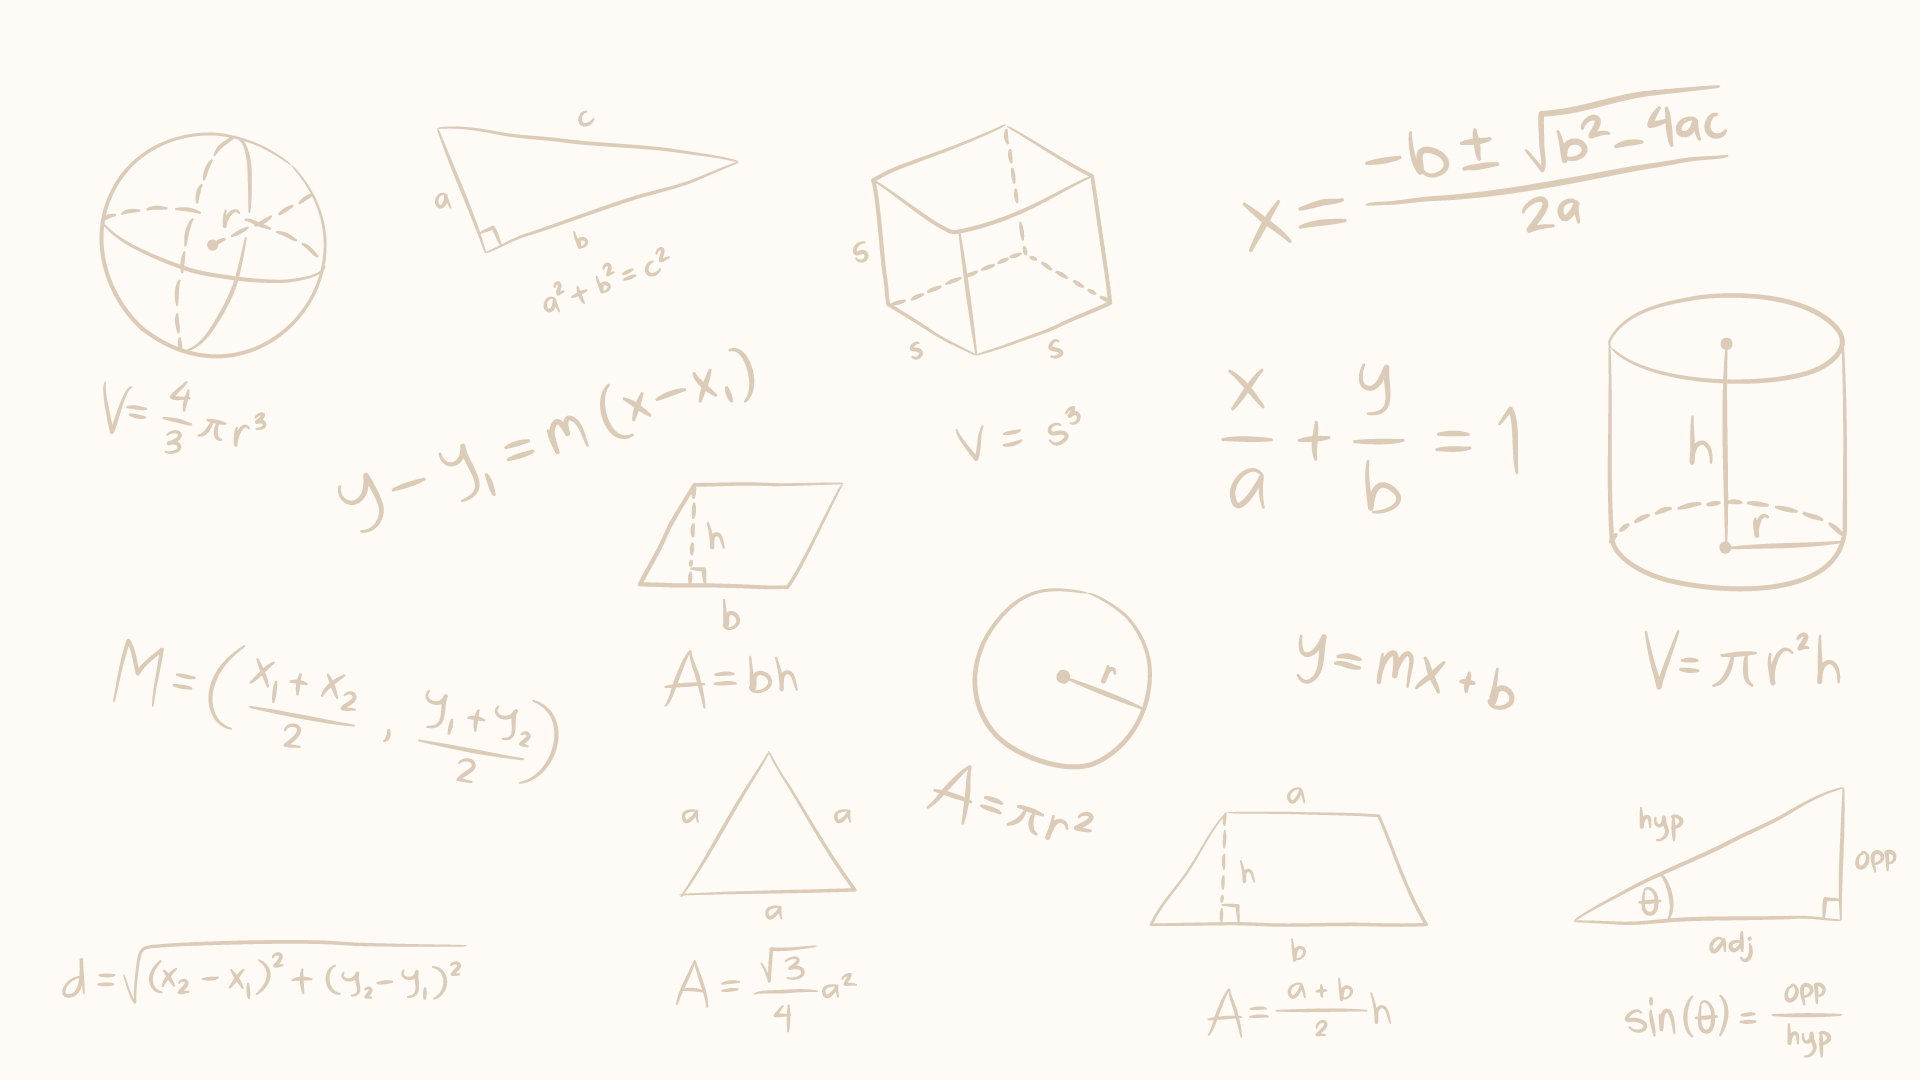 r
V = 4/3 πr³
c
a
b
a² + b² = c²
s
s
s
V = s³
x = (-b ± √(b² - 4ac)) / 2a
y - y₁ = m(x - x₁)
x/a + y/b = 1
h
r
V = πr²h
h
b
A = bh
M = ((x₁ + x₂)/2 , (y₁ + y₂)/2)
r
A = πr²
y = mx + b
a
a
a
A = √3/4 a²
a
h
b
A = (a + b)/2 h
hyp
opp
θ
adj
sin(θ) = opp/hyp
d = √((x₂ - x₁)² + (y₂ - y₁)²)